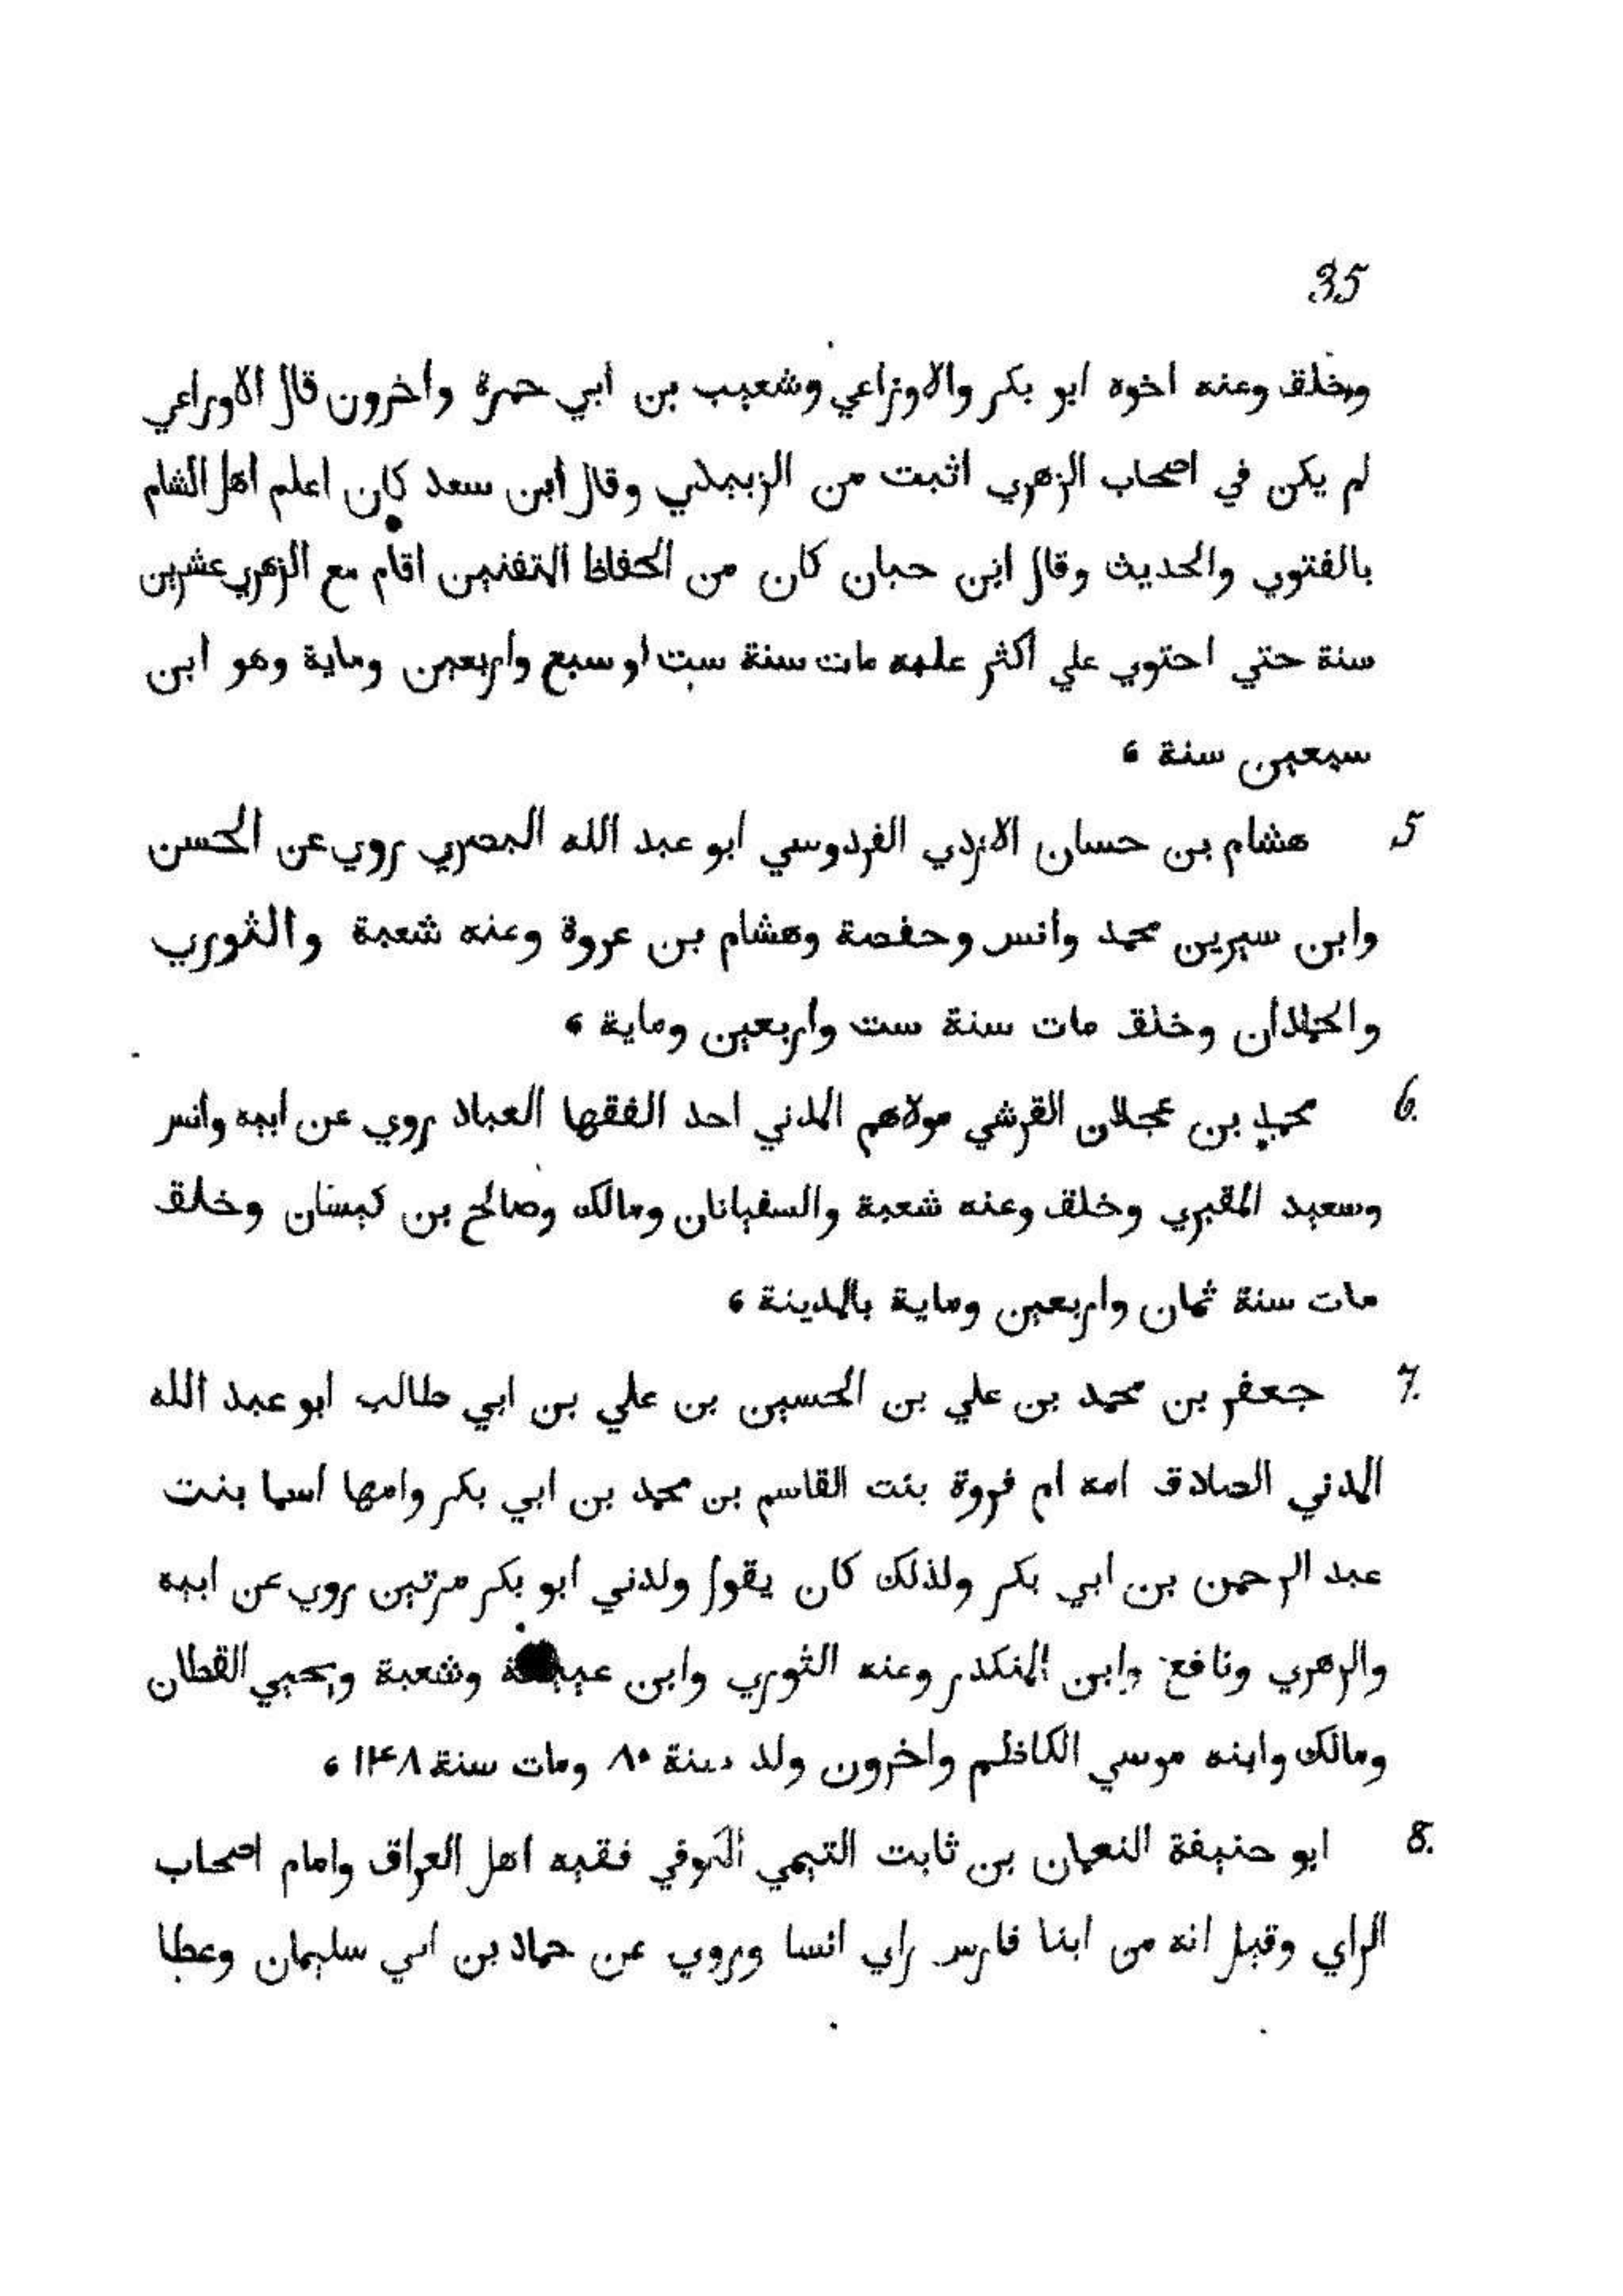 35
وخلق وعنه اخوه ابو بكر والاوزاعي وشعيب بن ابي حمزة واخرون قال الاوزاعي
لم يكن في اصحاب الزهري اثبت من الزبيدي وقال ابن سعد كان اعلم اهل الشام
بالفتوي والحديث وقال ابن حبان كان من الحفاظ المتقنين اقام مع الزهري عشرين
سنة حتي احتوي علي اكثر علمه مات سنة ست او سبع واربعين وماية وهو ابن
سبعين سنة ،
5 هشام بن حسان الازدي الفردوسي ابو عبد الله البصري روي عن الحسن
وابن سيرين محمد وانس وحفصة وهشام بن عروة وعنه شعبة والثوري
والحمادان وخلق مات سنة ست واربعين وماية ،
6. محمد بن عجلان القرشي مولاهم المدني احد الفقها العباد روي عن ابيه وانس
وسعيد المقبري وخلق وعنه شعبة والسفيانان ومالك وصالح بن كيسان وخلق
مات سنة ثمان واربعين وماية بالمدينة ،
7. جعفر بن محمد بن علي بن الحسين بن علي بن ابي طالب ابو عبد الله
المدني الصادق امه ام فروة بنت القاسم بن محمد بن ابي بكر وامها اسما بنت
عبد الرحمن بن ابي بكر ولذلك كان يقول ولدني ابو بكر مرتين روي عن ابيه
والزهري ونافع وابن المنكدر وعنه الثوري وابن عيينة وشعبة ويحيي القطان
ومالك وابنه موسي الكاظم واخرون ولد سنة ٨٠ ومات سنة ١٤٨ ،
8. ابو حنيفة النعمان بن ثابت التيمي الكوفي فقيه اهل العراق وامام اصحاب
الراي وقيل انه من ابنا فارس راي انسا وروي عن حماد بن ابي سليمان وعطا